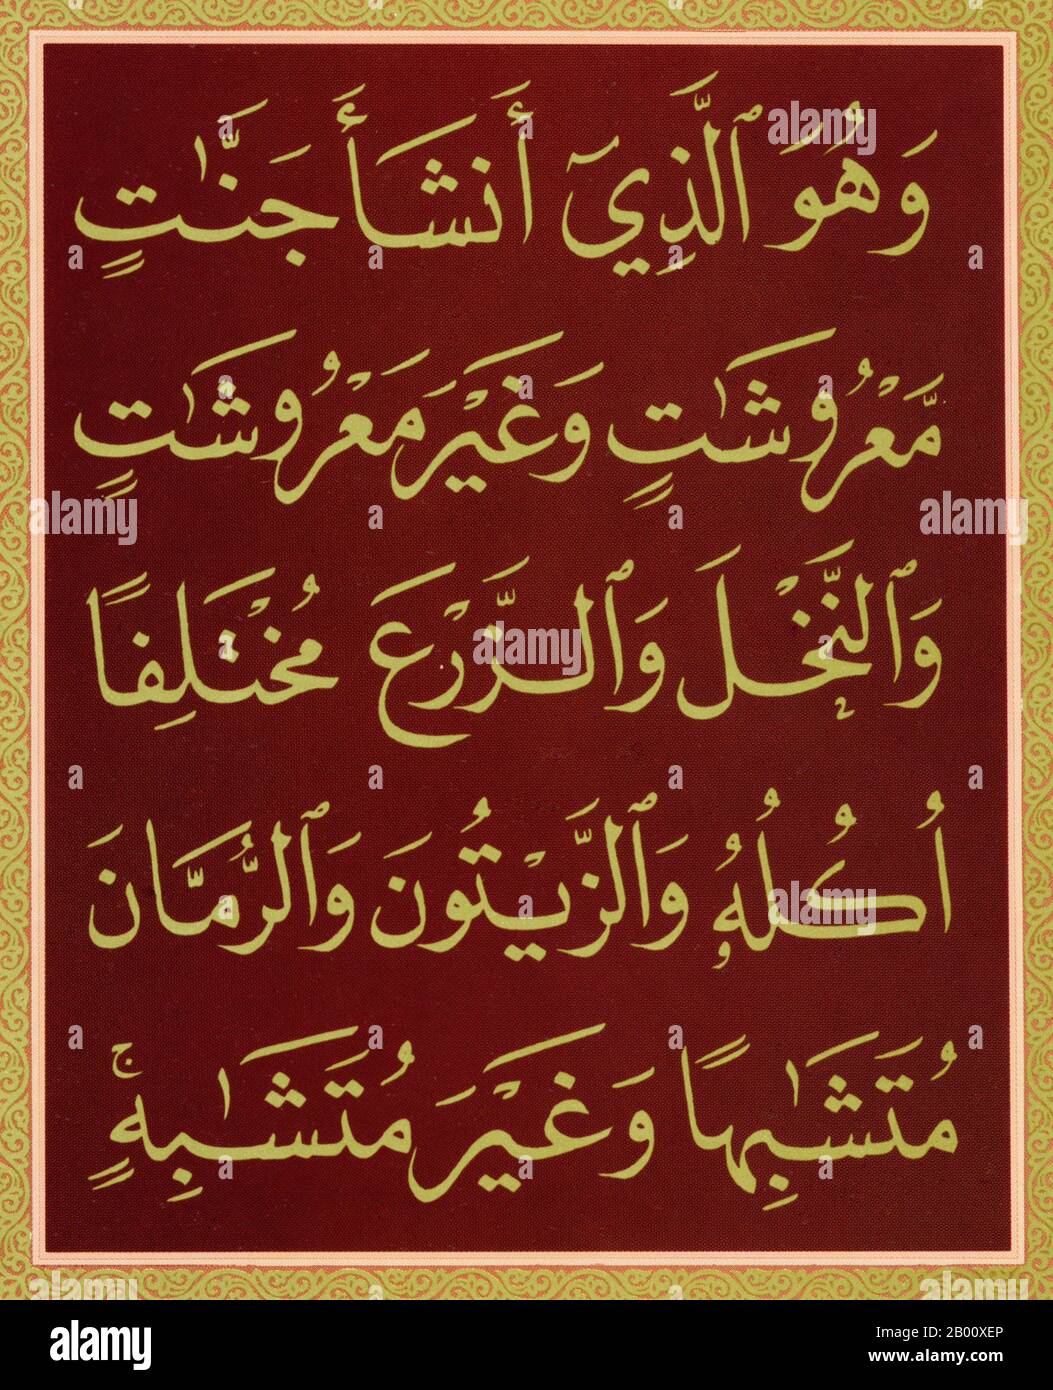 وَهُوَ ٱلَّذِيٓ أَنشَأَ جَنَّٰتٍ
مَّعْرُوشَٰتٍ وَغَيْرَ مَعْرُوشَٰتٍ
وَٱلنَّخْلَ وَٱلزَّرْعَ مُخْتَلِفًا
أُكُلُهُۥ وَٱلزَّيْتُونَ وَٱلرُّمَّانَ
مُتَشَٰبِهًا وَغَيْرَ مُتَشَٰبِهٍۚ
a alamy
Image ID: 2B00XEP
www.alamy.com